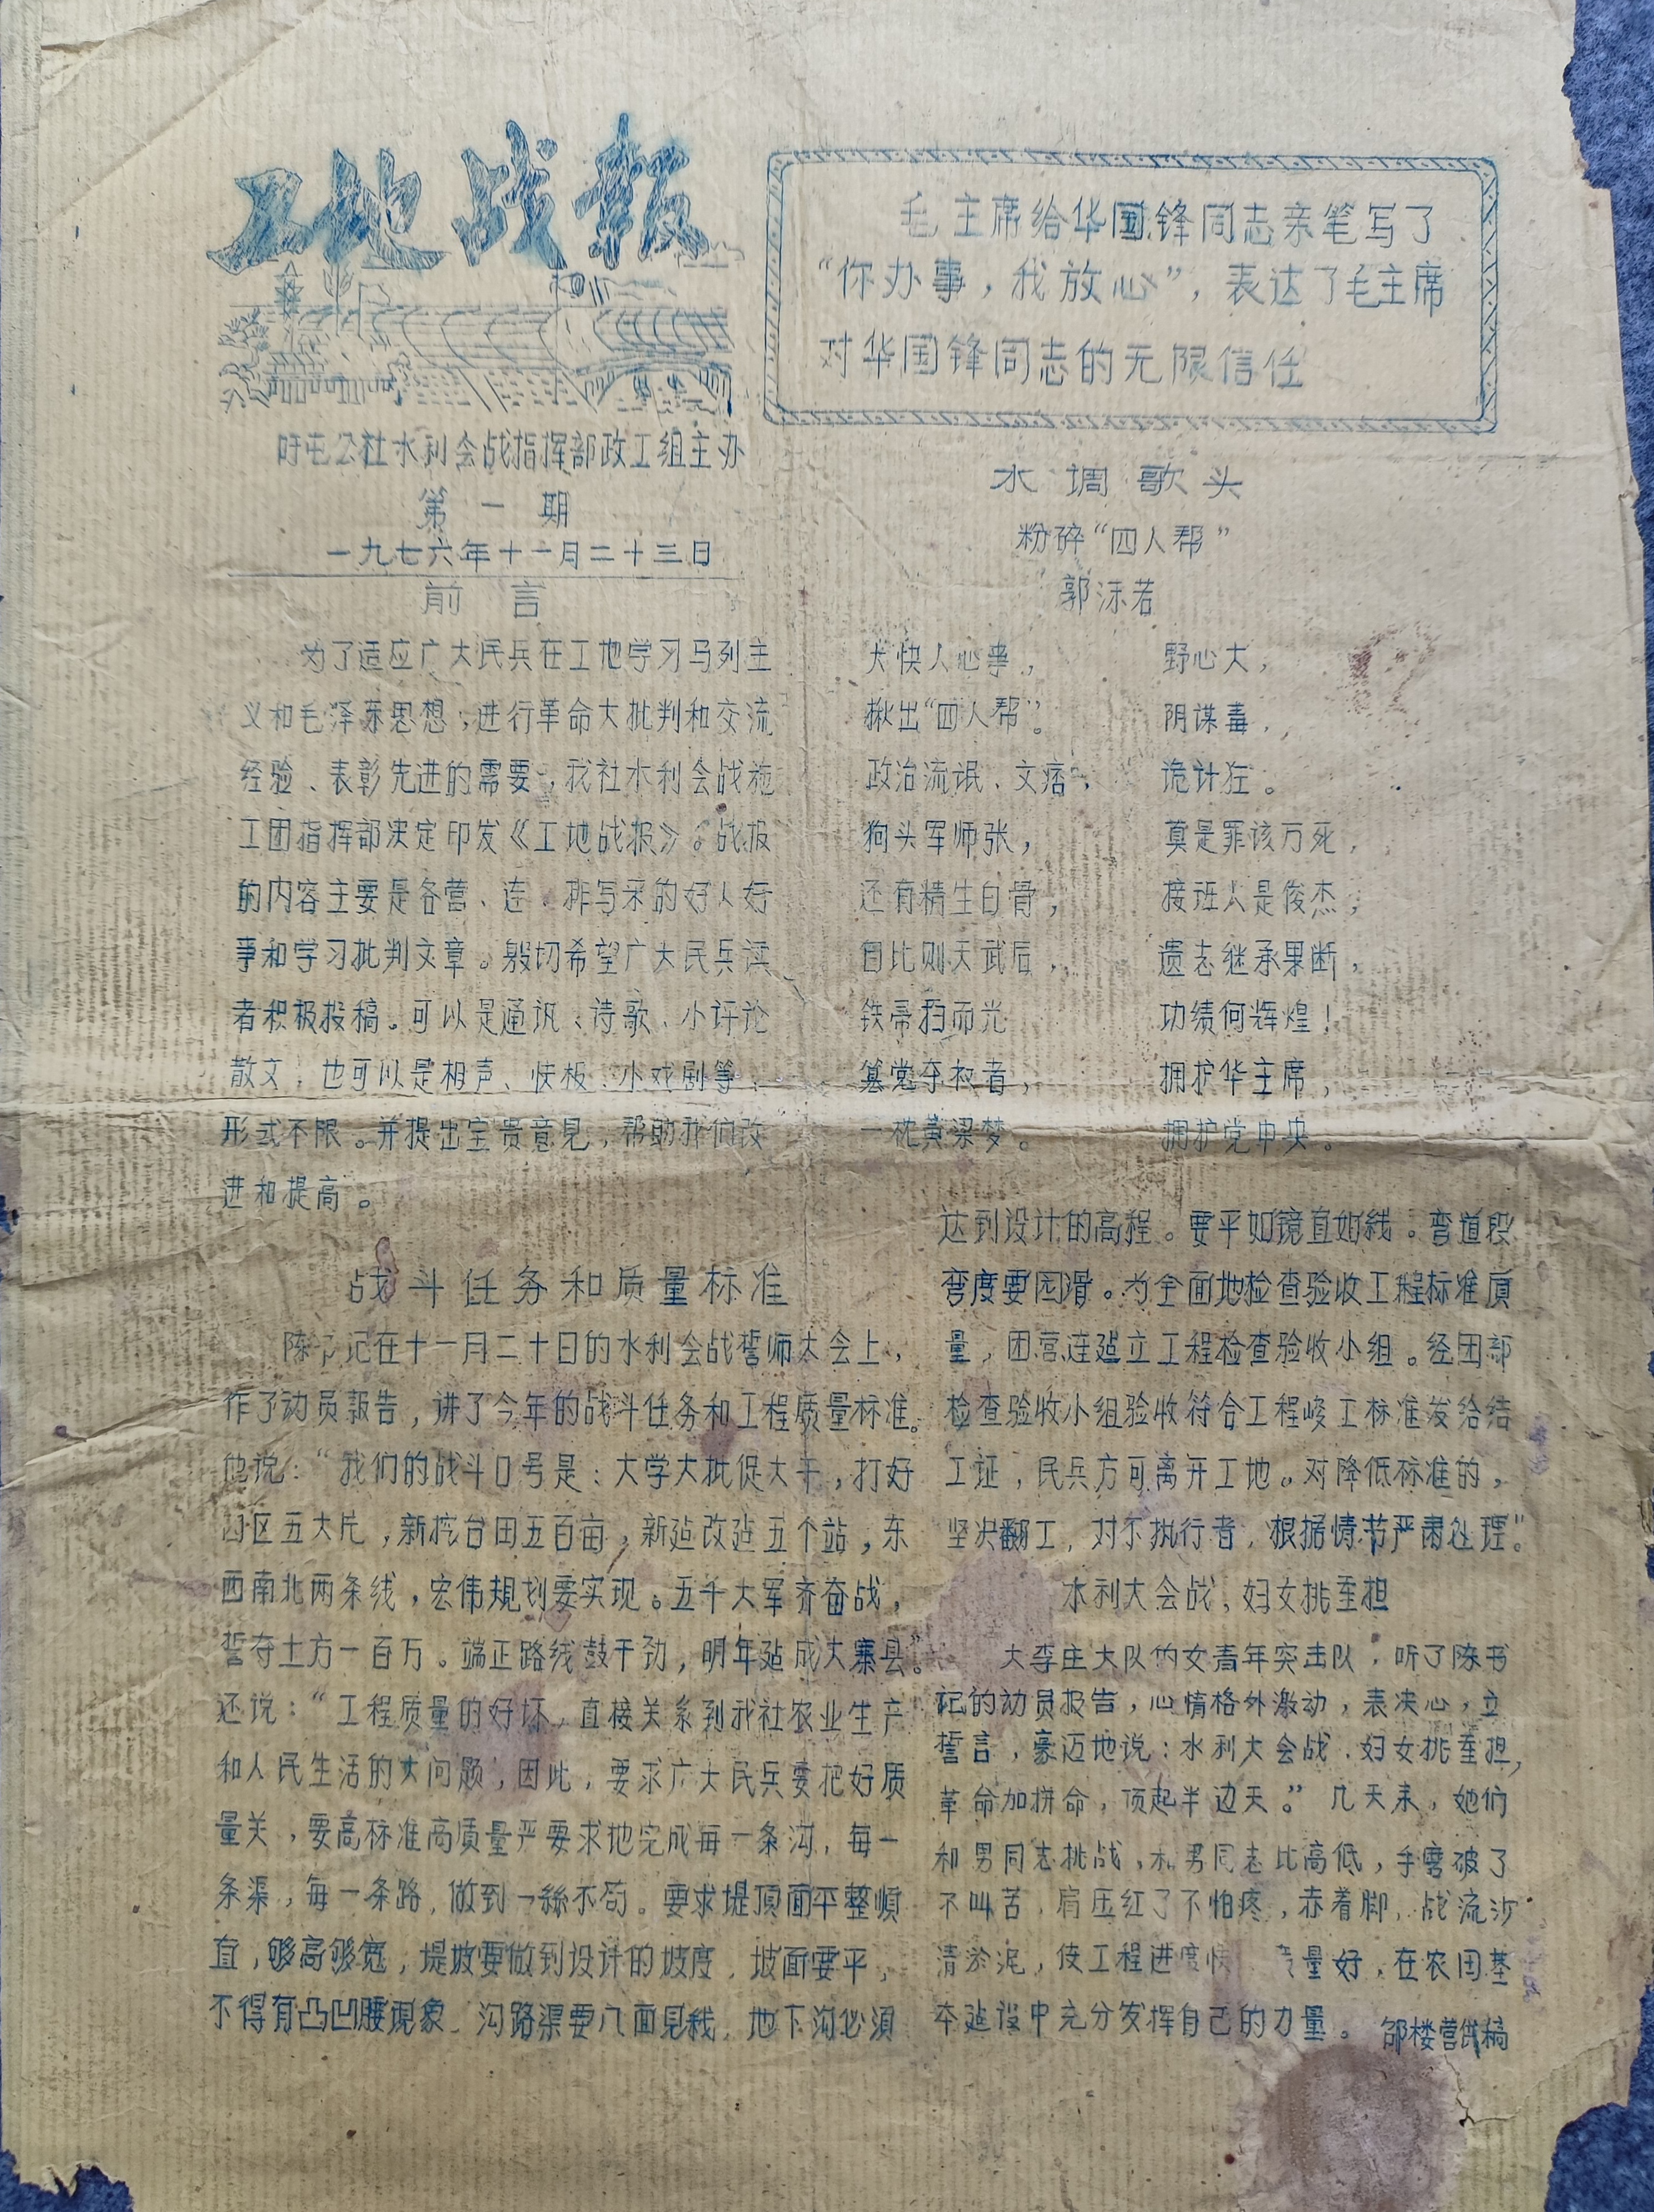 工地战报
毛主席给华国锋同志亲笔写了
“你办事，我放心”，表达了毛主席
对华国锋同志的无限信任
屯公社水利会战指挥部政工组主办
第一期
一九七六年十一月二十三日
前言
为了适应广大民兵在工地学习马列主
义和毛泽东思想，进行革命大批判和交流
经验、表彰先进的需要，我社水利会战施
工团指挥部决定印发《工地战报》。战报
的内容主要是各营、连、排写来的好人好
事和学习批判文章。殷切希望广大民兵读
者积极投稿。可以是通讯、诗歌、小评论
散文，也可以是相声、快板、小戏剧等，
形式不限。并提出宝贵意见，帮助我们改
进和提高。
水调歌头
粉碎“四人帮”
郭沫若
大快人心事，
揪出“四人帮”。
政治流氓、文痞，
狗头军师张，
还有精生白骨，
自比则天武后，
铁帚扫而光
篡党夺权者，
一枕黄梁梦。
野心大，
阴谋毒，
诡计狂。
真是罪该万死，
接班人是俊杰，
遗志继承果断，
功绩何辉煌！
拥护华主席，
拥护党中央。
战斗任务和质量标准
陈书记在十一月二十日的水利会战誓师大会上，
作了动员報告，讲了今年的战斗任务和工程质量标准。
他说：“我们的战斗口号是：大学大批促大干，打好
四区五大片，新挖台田五百亩，新建改建五个站，东
西南北两条线，宏伟规划要实现。五千大军齐奋战，
誓夺土方一百万。端正路线鼓干劲，明年建成大寨县。”
还说：“工程质量的好坏，直接关系到我社农业生产
和人民生活的大问题，因此，要求广大民兵要把好质
量关，要高标准高质量严要求地完成每一条沟，每一
条渠，每一条路，做到一絲不苟。要求堤頂面平整順
直，够高够宽，堤坡要做到设计的坡度，坡面要平，
不得有凸凹腰現象，沟路渠要八面見线，地下沟必須
达到设计的高程。要平如镜直如线。弯道段
弯度要园滑。为全面地检查验收工程标准质
量，团营连建立工程检查验收小组。经团部
检查验收小组验收符合工程峻工标准发给结
工证，民兵方可离开工地。对降低标准的，
坚决翻工，对不执行者，根据情节严肃处理。”
水利大会战，妇女挑重担
大李庄大队的女青年突击队，听了陈书
记的动员报告，心情格外激动，表决心，立
誓言，豪迈地说：水利大会战，妇女挑重担，
革命加拼命，顶起半边天。”几天来，她们
和男同志挑战，和男同志比高低，手磨破了
不叫苦，肩压红了不怕疼，赤着脚，战流沙
清淤泥，使工程进度快 质量好，在农田基
本建设中充分发挥自己的力量。
邵楼营供稿